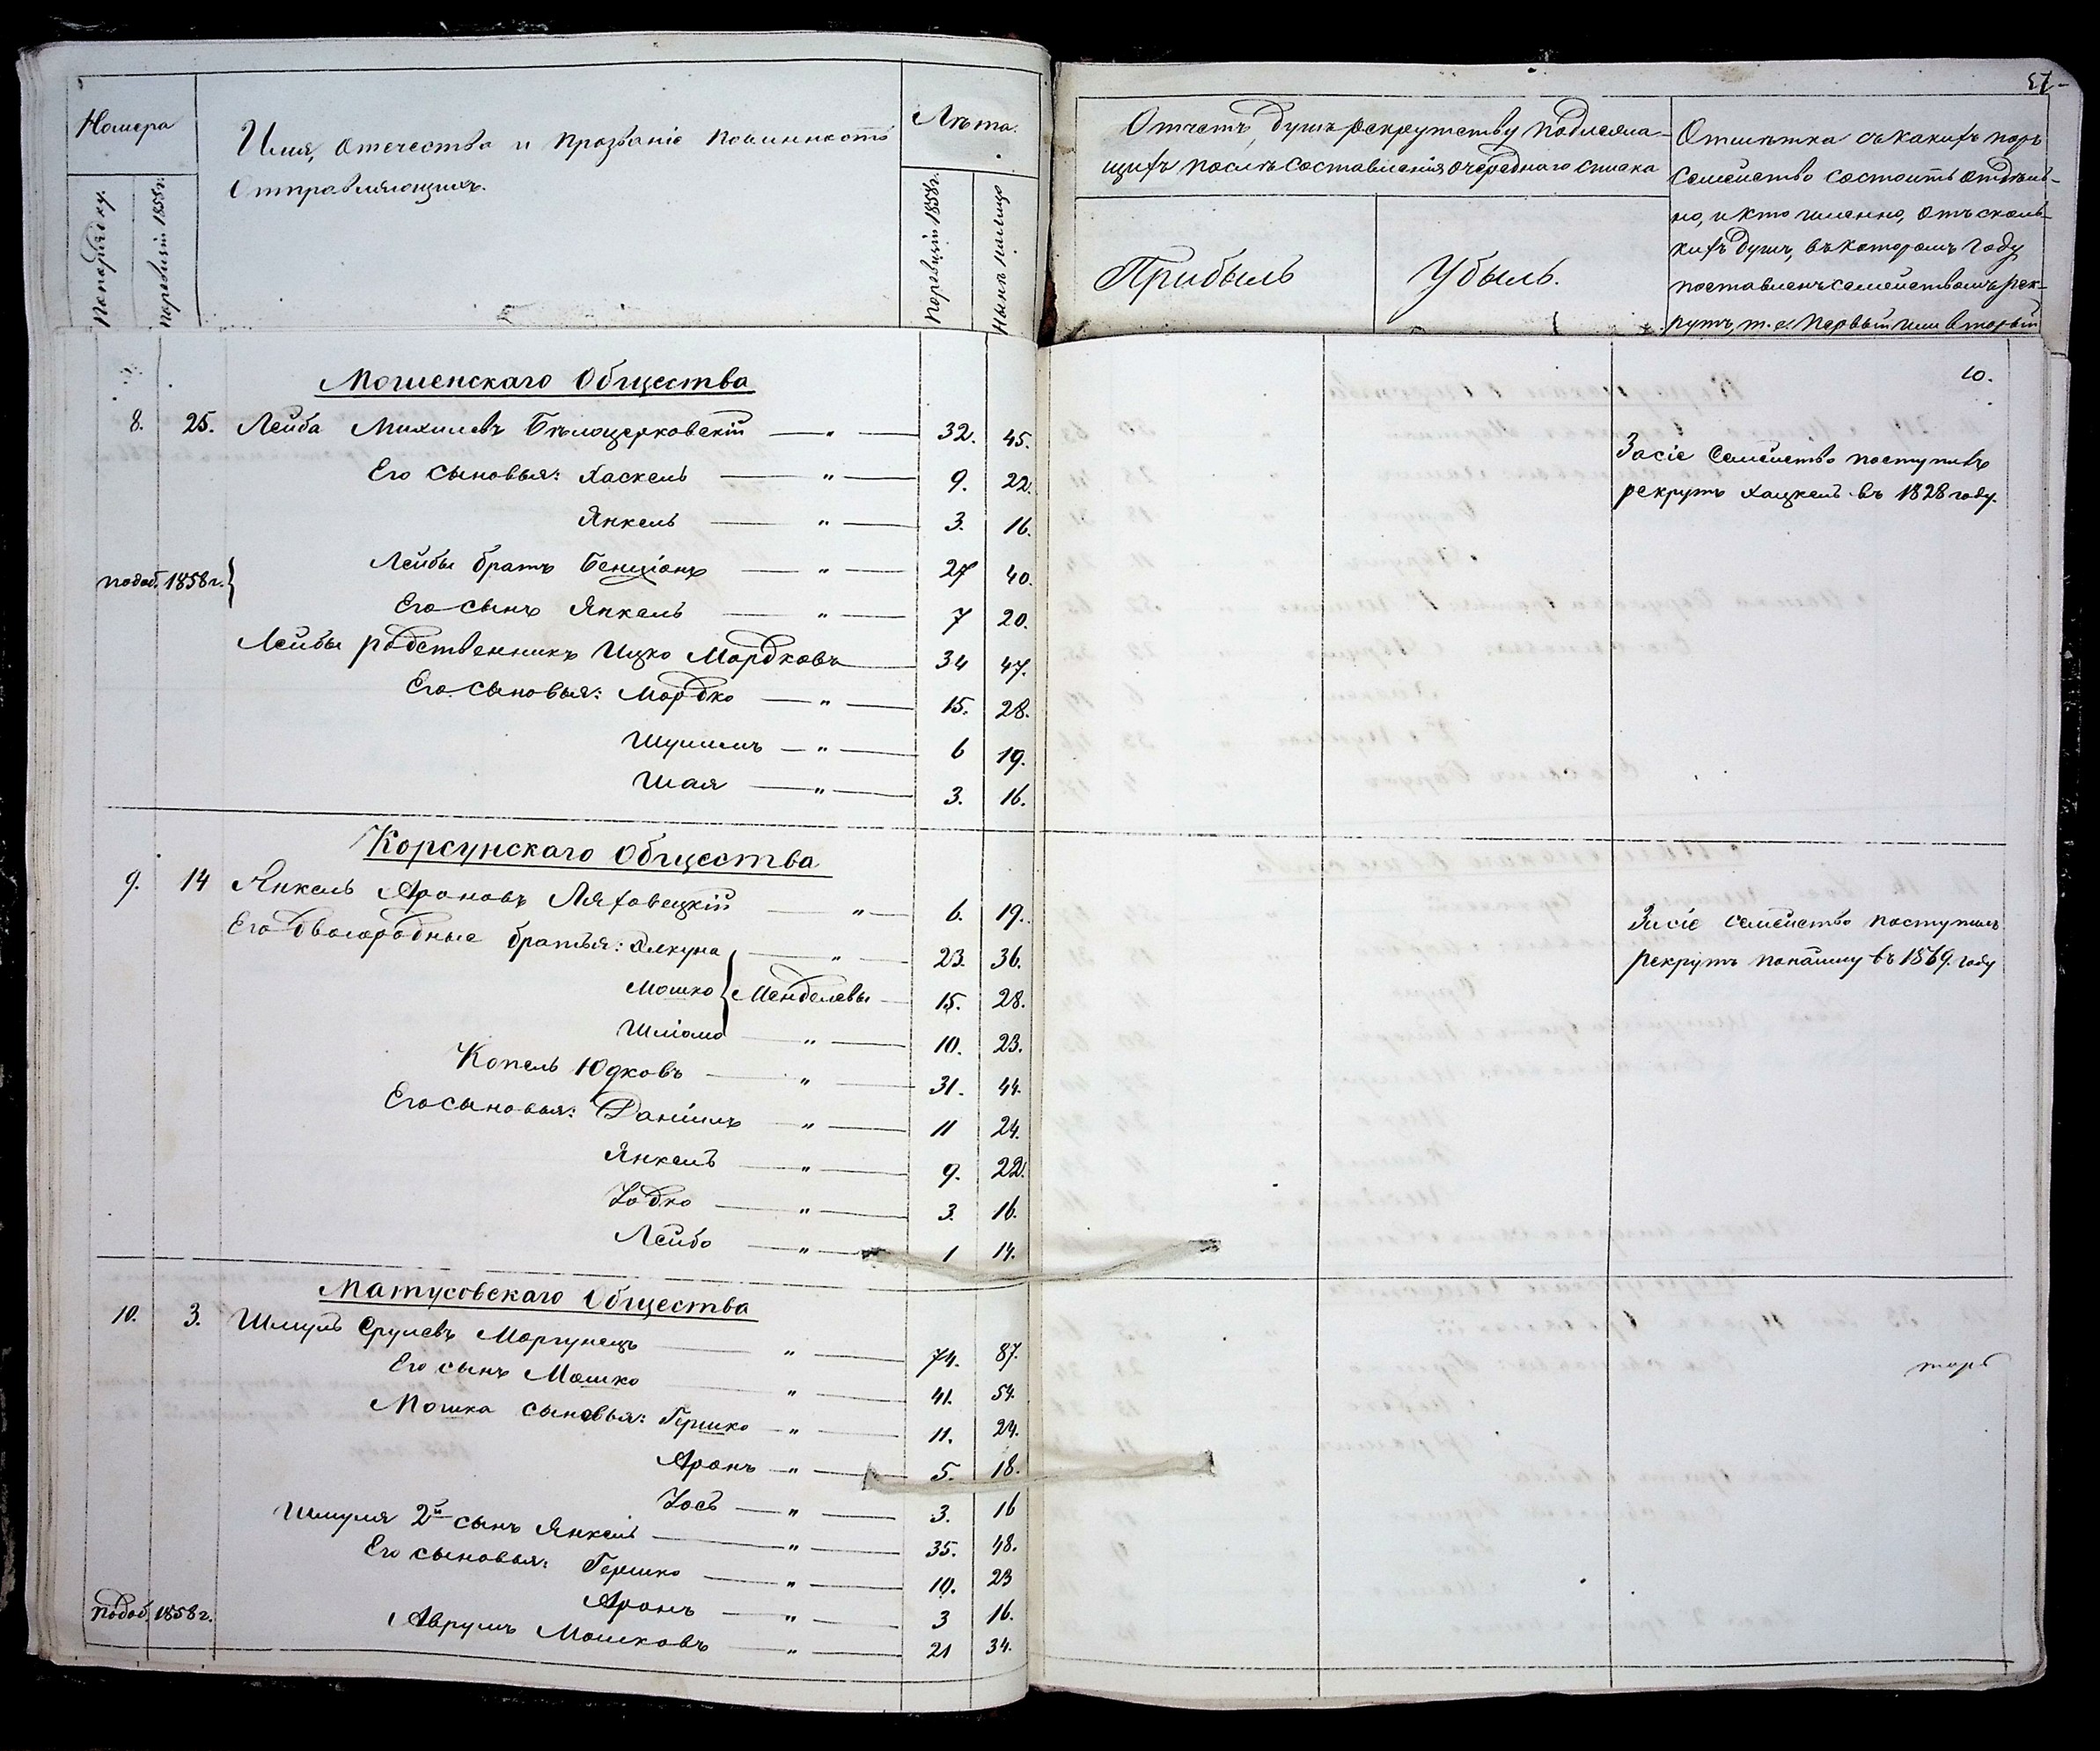 57
Номера
Имя, отечество и прозваніе повинность
отправляющихъ.
Лѣта.
По порядку.
По ревизіи 1858 г.
По ревизіи 1858 г.
Нынѣ налицо
Отчетъ душъ рекрутству подлежа-
щихъ послѣ составленія очереднаго списка
Прибыль
Убыль.
Отмѣтка съ какихъ поръ
семейство состоитъ отдѣль-
но, и кто именно, отъ сколь-
кихъ душъ, въ которомъ году
поставленъ семействомъ рек-
рутъ, т. е. первый или вторый
10.
Мошенскаго Общества
8. 25. Лейба Михилевъ Бѣлоцерковскій — " — 32. 45.
Его сыновья: Хаскель — " — 9. 22.
Янкель — " — 3. 16.
Лейбы братъ Бенціонъ — " — 27 40.
по доб. 1858 г. }
Его сынъ Янкель — " — 7 20.
Лейбы родственникъ Ицко Мордковъ — 34 47.
Его сыновья: Мордко — " — 15. 28.
Шулимъ — " — 6 19.
Шая — " — 3. 16.
За сіе семейство поступилъ
рекрутъ Хацкель въ 1828 году.
Корсунскаго Общества
9. 14 Янкель Ароновъ Ляховецкій — " — 6. 19.
Его двоюродные братья: Элкуна — " — 23. 36.
Мошко } Менделевы — 15. 28.
Шліома — " — 10. 23.
Копель Юдковъ — " — 31. 44.
Его сыновья: Даніилъ — " — 11 24.
Янкель — " — 9. 22.
Іодко — " — 3. 16.
Лейбо — " — 1 14.
За сіе семейство поступилъ
рекрутъ по найму въ 1869. году
Матусовскаго Общества
10. 3. Шмуль Срулевъ Моргунецъ — " — 74. 87.
Его сынъ Мошко — " — 41. 54.
Мошка сыновья: Гершко — " — 11. 24.
Аронъ — " — 5. 18.
Іось — " — 3. 16
Шмуля 2й сынъ Янкель — " — 35. 48.
Его сыновья: Гершко — " — 10. 23
Аронъ — " — 3 16.
по доб. 1858 г.
Аврумъ Мошковъ — " — 21 34.